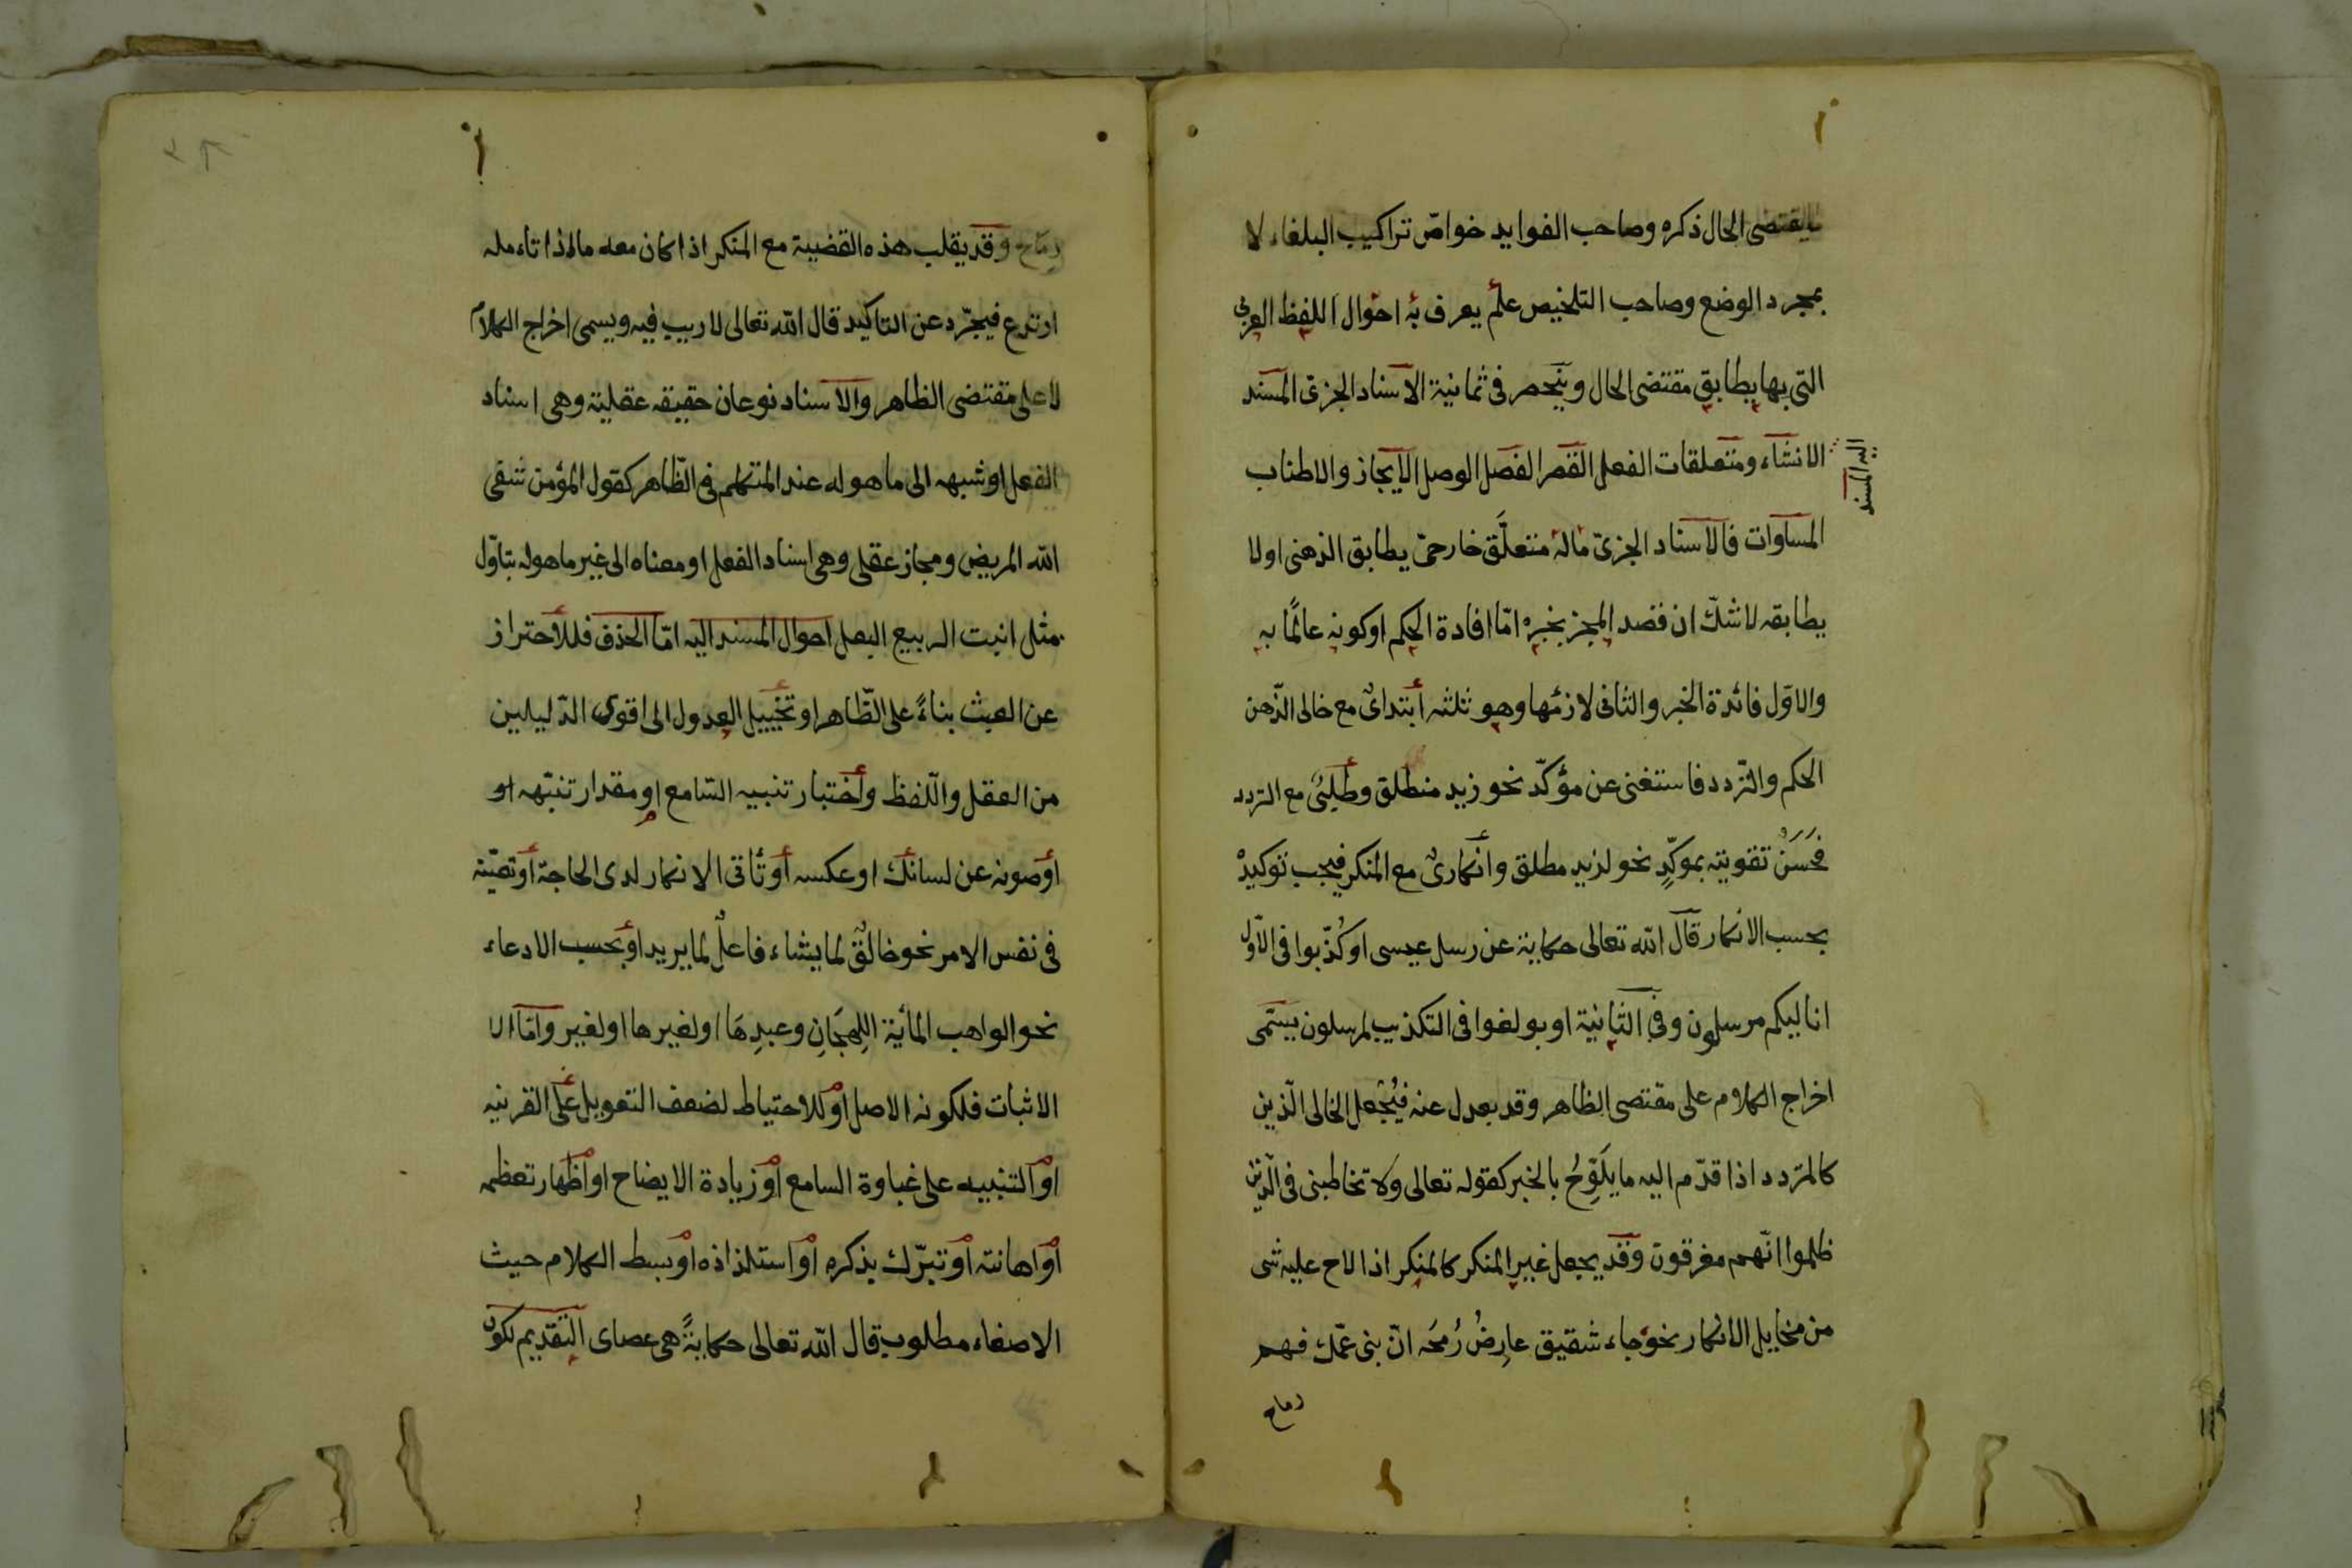 يقتضى الحال ذكره وصاحب الفوايد خواصّ تراكيب البلغاء لا
بمجرد الوضع وصاحب التلخيص علم يعرف به احوال اللفظ العربى
التى بها يطابق مقتضى الحال وينحصر فى ثمانية الاسناد الجزى المسند
اليه المسند
الانشاء ومتعلقات الفعل القصر الفصل الوصل الايجاز والاطناب
المساوات فالاسناد الجزىّ ماله متعلَّق خارجىّ يطابق الذهنى اولا
يطابقه لاشكّ ان قصد المجز بخبره امّا افادة الحكم اوكونه عالمًا به
والاوّل فائدة الخبر والثانى لازمها وهو ثلثه أبتدائ مع خالى الذّهن
الحكم والتّردد فاستغنى عن مؤكدّ نحو زيد منطلق وطلبىّ مع التردد
فحَسَنٌ تقويته بموكدٍّ نحو لزيد مطلق وانكارىٌ مع المنكر فيجب توكيدهْ
بحسب الانكار قال الله تعالى حكاية عن رسل عيسى اوكُذّبوا فى الاوّل
انا ليكم مرسلون وفى الثانية اوبولغوا فى التكذيب لمرسلون يسّمى
اخراج الكلام على مقتضى الظاهر وقد يعدل عنه فيُجْعل الخالى الّذين
كالمتردد اذا قدّم اليه ما يلَوِّحُ بالخبر كقوله تعالى ولا تخاطبنى فى الّذين
ظلموا انّهم مغرقون وقد يجعل غير المنكر كالمنكر اذا لاح عليه شى
من مخايل الانكار نحو جاء شقيق عارِضُ رُمحَه انّ بنى عمّك فهم
رماح
رماح وقد يقلب هذه القضية مع المنكر اذا كان معه ما اذا تاءمله
ارتدع فيجرّد عن التاكيد قال الله تعالى لا ريب فيه ويسمى اخراج الكلام
لا على مقتضى الظاهر والاسناد نوعان حقيقه عقلية وهى اسناد
الفعل اوشبهه الى ما هوله عند المتكلم فى الظّاهر كقول المؤمن شفى
الله المريض ومجاز عقلى وهى اسناد الفعل اومعناه الى غير ماهوله بتاوّل
مثل انبت الربيع البعل احوال المسند اليه امّا الحذف فللأحتراز
عن العبث بناءً على الظّاهر او تخييل العدول الى اقوى الدّليلين
من العقل واللّفظ وأختبار تنبيه السّامع اومقدار تنبّهه او
اوصونه عن لسانك اوعكسه أوتأتى الانكار لدى الحاجة اوتعيّنه
فى نفس الامر نحو خالقٌ لما يشاء فاعلٌ لما يريد اوبحسب الادعاء
نحو الواهب المائة اللِهجَانِ وعبدِهَا اولغيرها اولغير وامّا الا
الاثبات فلكونه الاصل اوللاحتياط لضعف التعويل على القرينه
اوالتنبيه على غباوة السامع اوزيادة الايضاح اواظهار تعظمه
اواهانته اوتبرّك بذكره اواستلذاذه اوبسط الكلام حيث
الاصغاء مطلوب قال الله تعالى حكايةً هى عصاى التقديم لكون